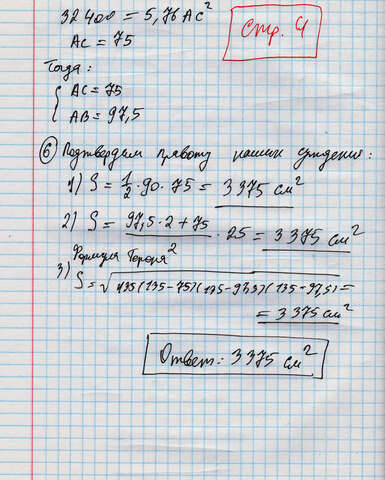 32400 = 5,76 AC²
Стр. 4
AC = 75
Тогда:
{ AC = 75
AB = 97,5
⑥ Подтвердим правоту наших суждений:
1) S = 1/2 · 90 · 75 = 3375 см²
2) S = (97,5 · 2 + 75)/2 · 25 = 3375 см²
Формула Герона
3) S = √135(135-75)(135-97,5)(135-97,5) =
= 3375 см²
Ответ: 3375 см²